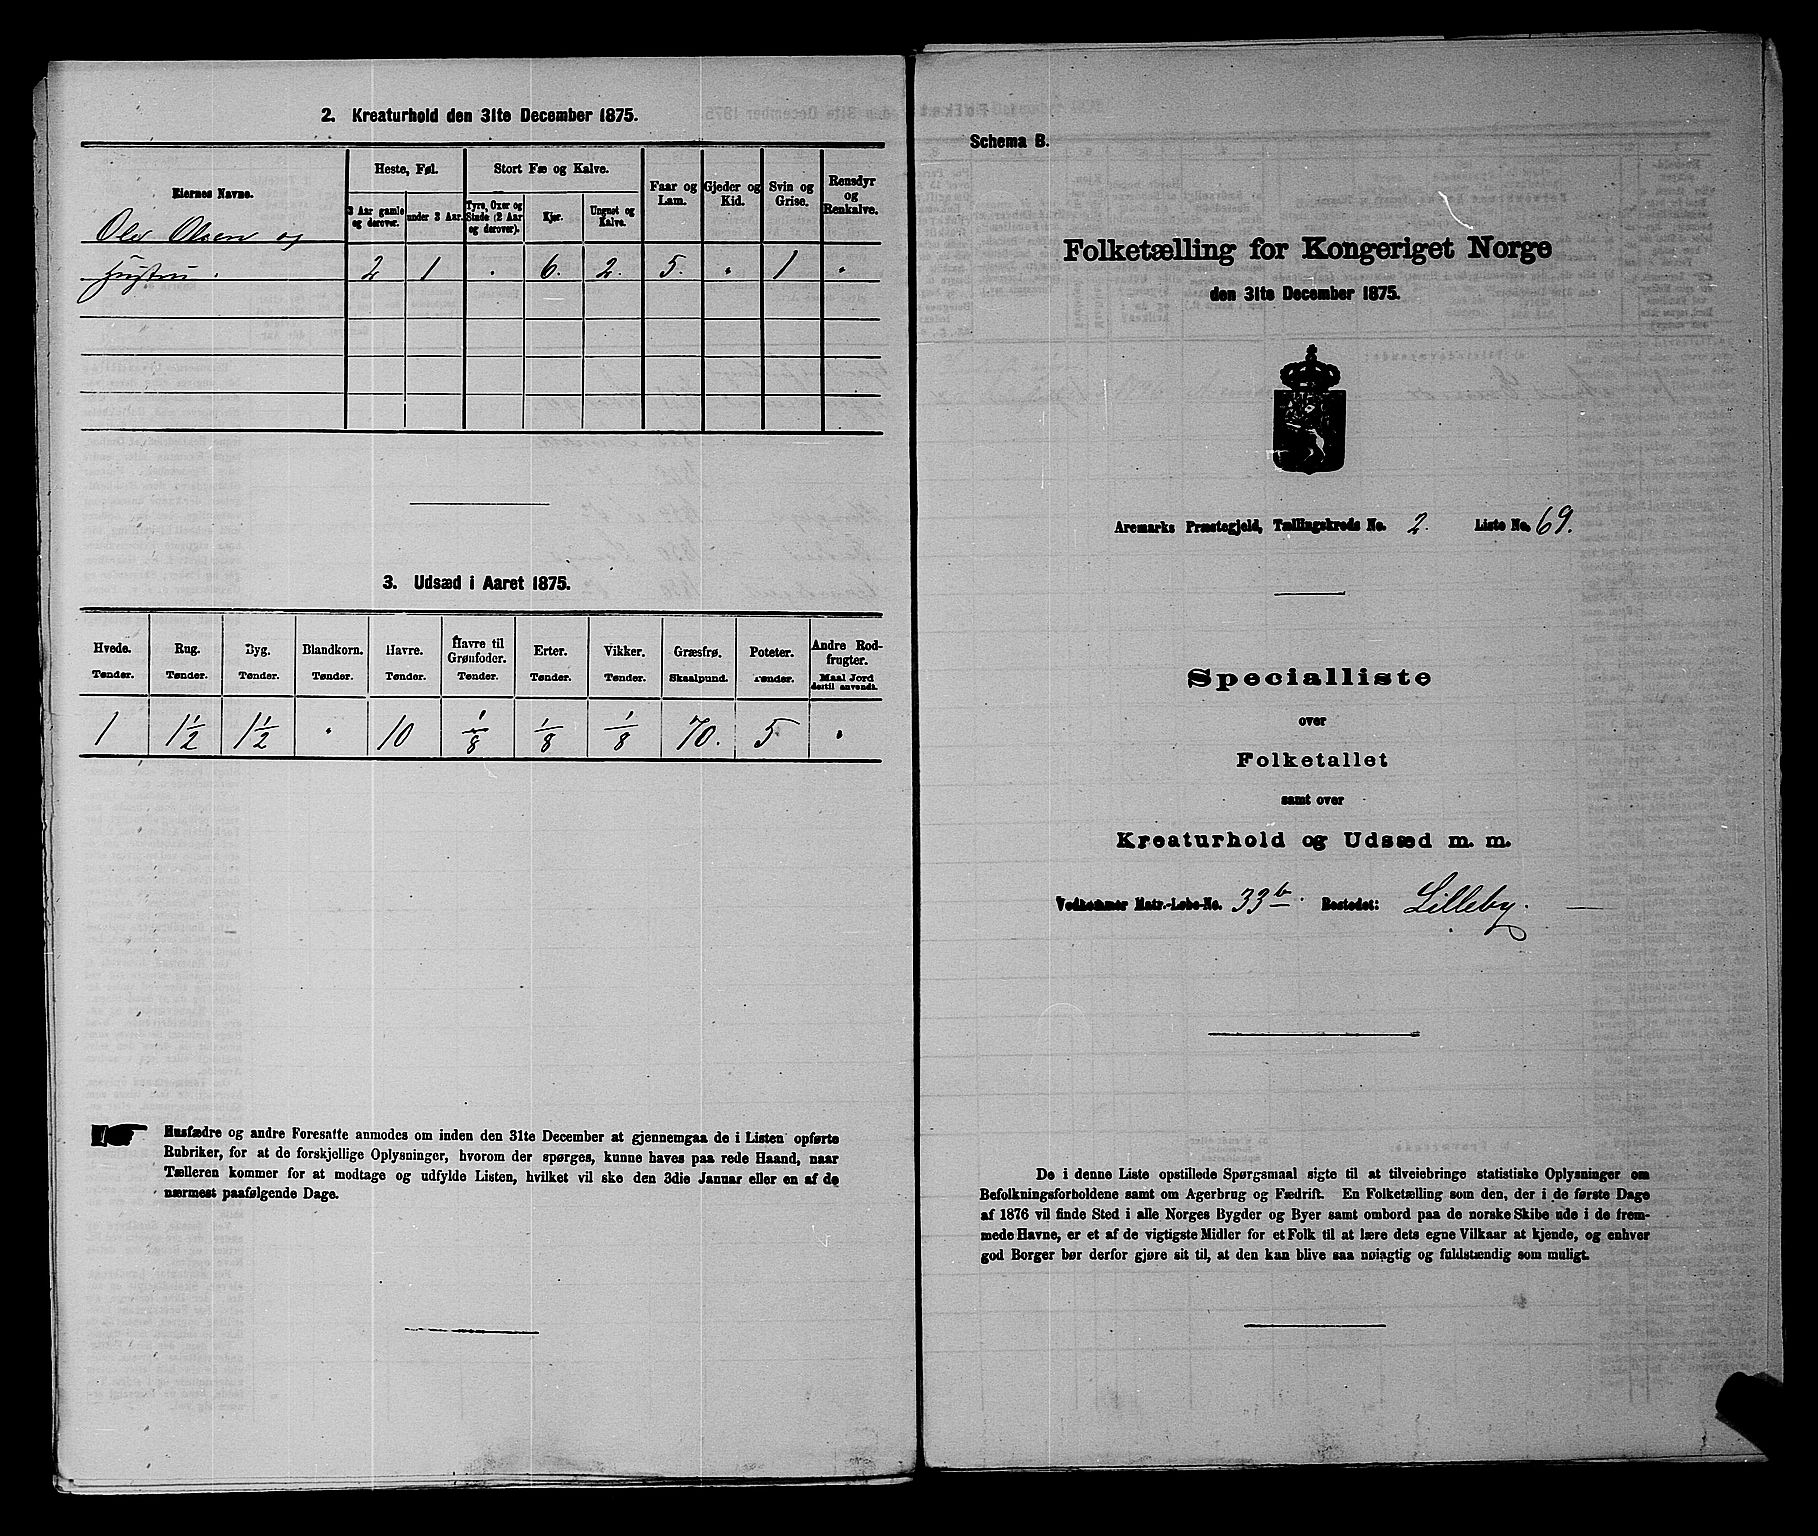 2. Kreaturhold den 31te December 1875.
Eiernes Navne.
Heste, Føl.
Stort Fæ og Kalve.
Faar og Lam.
Gjeder og Kid.
Svin og Grise.
Rensdyr og Renkalve.
3 Aar gamle og derover.
under 3 Aar.
Tyre, Oxer og Stude (2 Aar og derover).
Kjør.
Ungnøt og Kalve.
Ole Olsen og
Hustru. 2 1 " 6. 2. 5. " 1 "
3. Udsæd i Aaret 1875.
Hvede. Rug. Byg. Blandkorn. Havre. Havre til Grønfoder. Erter. Vikker. Græsfrø. Poteter. Andre Rodfrugter.
Tønder. Tønder. Tønder. Tønder. Tønder. Tønder. Tønder. Tønder. Skaalpund. Tønder. Maal Jord dertil anvendt.
1 1½ 1½ " 10 1/8 1/8 1/8 70. 5 "
Husfædre og andre Foresatte anmodes om inden den 31te December at gjennemgaa de i Listen opførte
Rubriker, for at de forskjellige Oplysninger, hvorom der spørges, kunne haves paa rede Haand, naar
Tælleren kommer for at modtage og udfylde Listen, hvilket vil ske den 3die Januar eller en af de
nærmest paafølgende Dage.
Schema B.
Folketælling for Kongeriget Norge
den 31te December 1875.
Aremarks Præstegjeld, Tællingskreds No. 2. Liste No. 69.
Specialliste
over
Folketallet
samt over
Kreaturhold og Udsæd m. m.
Vedkommer Matr.-Løbe-No. 33b. Bostedet: Lilleby.
De i denne Liste opstillede Spørgsmaal sigte til at tilveiebringe statistiske Oplysninger om
Befolkningsforholdene samt om Agerbrug og Fædrift. En Folketælling som den, der i de første Dage
af 1876 vil finde Sted i alle Norges Bygder og Byer samt ombord paa de norske Skibe ude i de frem-
mede Havne, er et af de vigtigste Midler for et Folk til at lære dets egne Vilkaar at kjende, og enhver
god Borger bør derfor gjøre sit til, at den kan blive saa nøiagtig og fuldstændig som muligt.